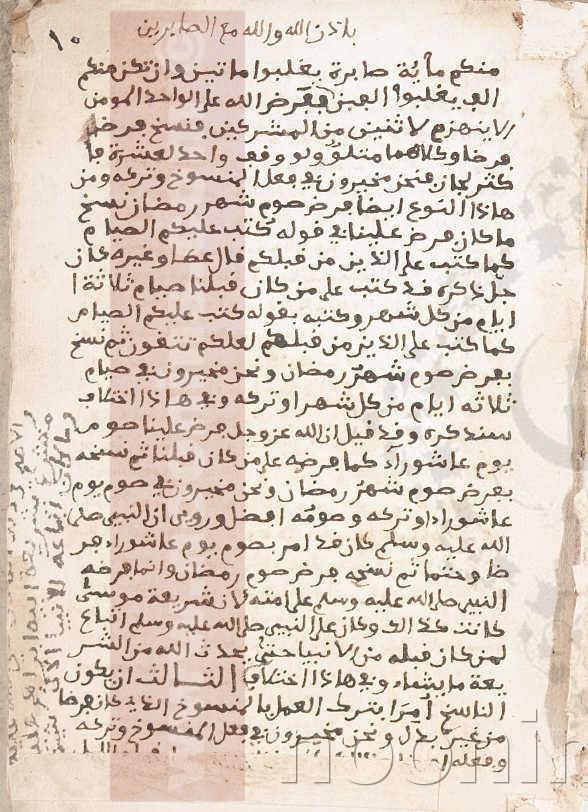 ١٠
باذن الله والله مع الصابرين
منكم مأية صابرة يغلبوا ماتين وان تكن منكم
الف يغلبوا الفين ففرض الله على الواحد المومن
الا ينهزم لاثنين من المشركين فنسخ فرضا
فرضا وكلاهما متلوّ ولو وقف واحد لعشرة فا
كثر لجاز فنحن مخيرون في فعل المنسوخ وتركه ومن
هاذا النوع ايضا فرض صوم شهر رمضان نسخ
ما كان فرض علينا في قوله كتب عليكم الصيام
كما كتب على الذين من قبلكم قال عطا وغيره كان
جل ذكره قد كتب على من كان قبلنا صيام ثلاثة ا
ايام من كل شهر وكتبه بقوله كتب عليكم الصيام
كما كتب على الذين من قبلكم لعلكم تتقون ثم نسخ
بفرض صوم شهر رمضان ونحن مخيرون في صيام
ثلاثه ايام من كل شهر او تركه وفي هاذا اختلاف
سنذكره وقد قيل ان الله عز وجل فرض علينا صوم
يوم عاشوراء كما فرضه على من كان قبلنا ثم نسخه
بفرض صوم شهر رمضان ونحن مخيرون في صوم يوم
عاشوراء او تركه وصومه افضل وروي ان النبي صلى
الله عليه وسلم كان قد امر بصوم يوم عاشوراء فر
ضا وحتما ثم نسخه فرض صوم رمضان وانما فرضه
النبي صلى الله عليه وسلم على امته لان شريعة موسى
كانت كذالك وكان على النبي صلى الله عليه وسلم اتباع
لمن كان قبله من الانبيا حتى يحدث الله من الشر
يعة ما يشاء وفي هاذا اختلاف الثالث ان يكون
الناسخ امرا بترك العمل بالمنسوخ الذي كان فرضا
من غير بدل ونحن مخيرون في فعل المنسوخ وتركه
وفعله